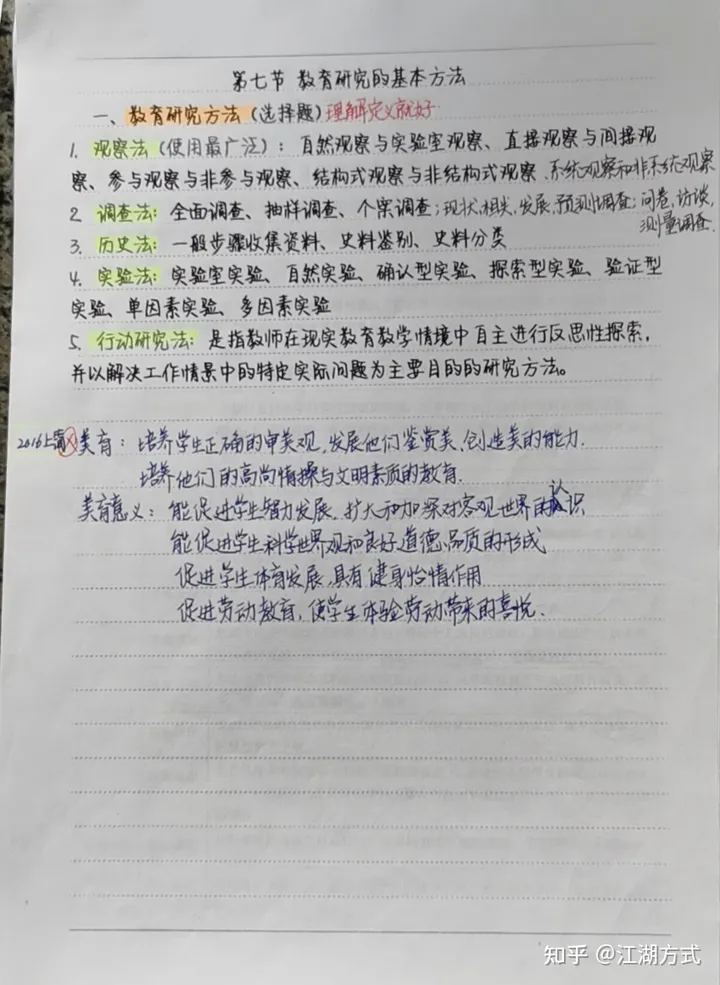 第七节 教育研究的基本方法
一、教育研究方法(选择题)理解定义就好
1. 观察法(使用最广泛):自然观察与实验室观察、直接观察与间接观
察、参与观察与非参与观察、结构式观察与非结构式观察、系统观察和非系统观察
2. 调查法:全面调查、抽样调查、个案调查;现状,相关,发展,预测调查;问卷,访谈,
测量调查.
3. 历史法:一般步骤收集资料、史料鉴别、史料分类
4. 实验法:实验室实验、自然实验、确认型实验、探索型实验、验证型
实验、单因素实验、多因素实验
5. 行动研究法:是指教师在现实教育教学情境中自主进行反思性探索,
并以解决工作情景中的特定实际问题为主要目的的研究方法。
2016上简 美育:培养学生正确的审美观,发展他们鉴赏美,创造美的能力.
培养他们的高尚情操与文明素质的教育.
美育意义:能促进学生智力发展,扩大和加深对客观世界的认识
能促进学生科学世界观和良好道德品质的形成
促进学生体育发展,具有健身怡情作用
促进劳动教育,使学生体验劳动带来的喜悦.
知乎 @江湖方式